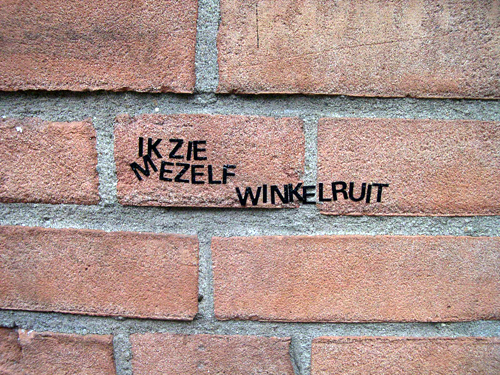 IK ZIE
MEZELF
WINKELRUIT